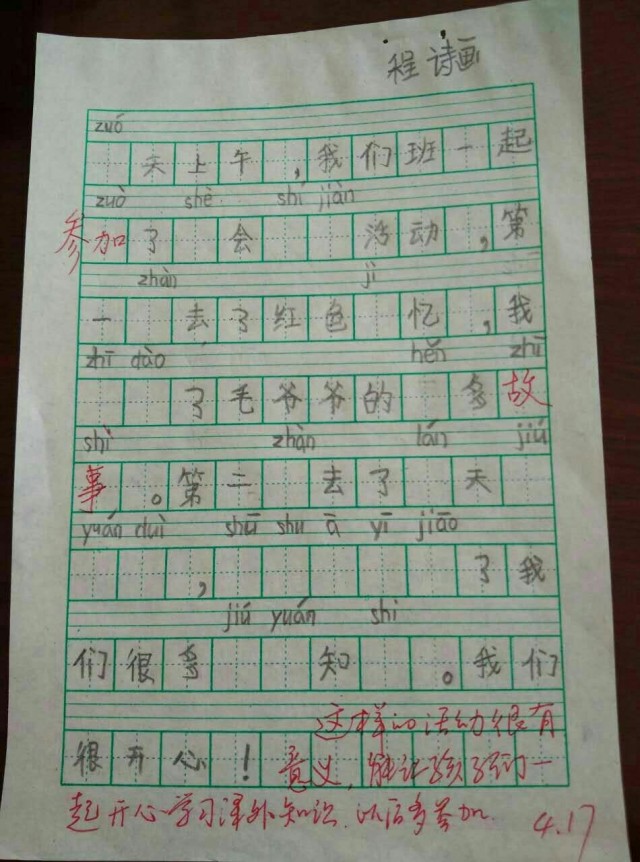 程诗画
zuó
天上午，我们班一起
zuò shè shí jiàn
参加了 会 活动，第
zhàn jì
一 去了红色 忆，我
zhī dào hěn zhī
了毛爷爷的 多故
shì zhàn lán jiú
事。第二 去了 天
yuán duì shū shu ā yī jiāo
，了我
jiú yuán shi
们很多 知 。我们
很开心！
这样的活动很有
意义，能让孩子们一
起开心学习课外知识，以后多参加。
4.17